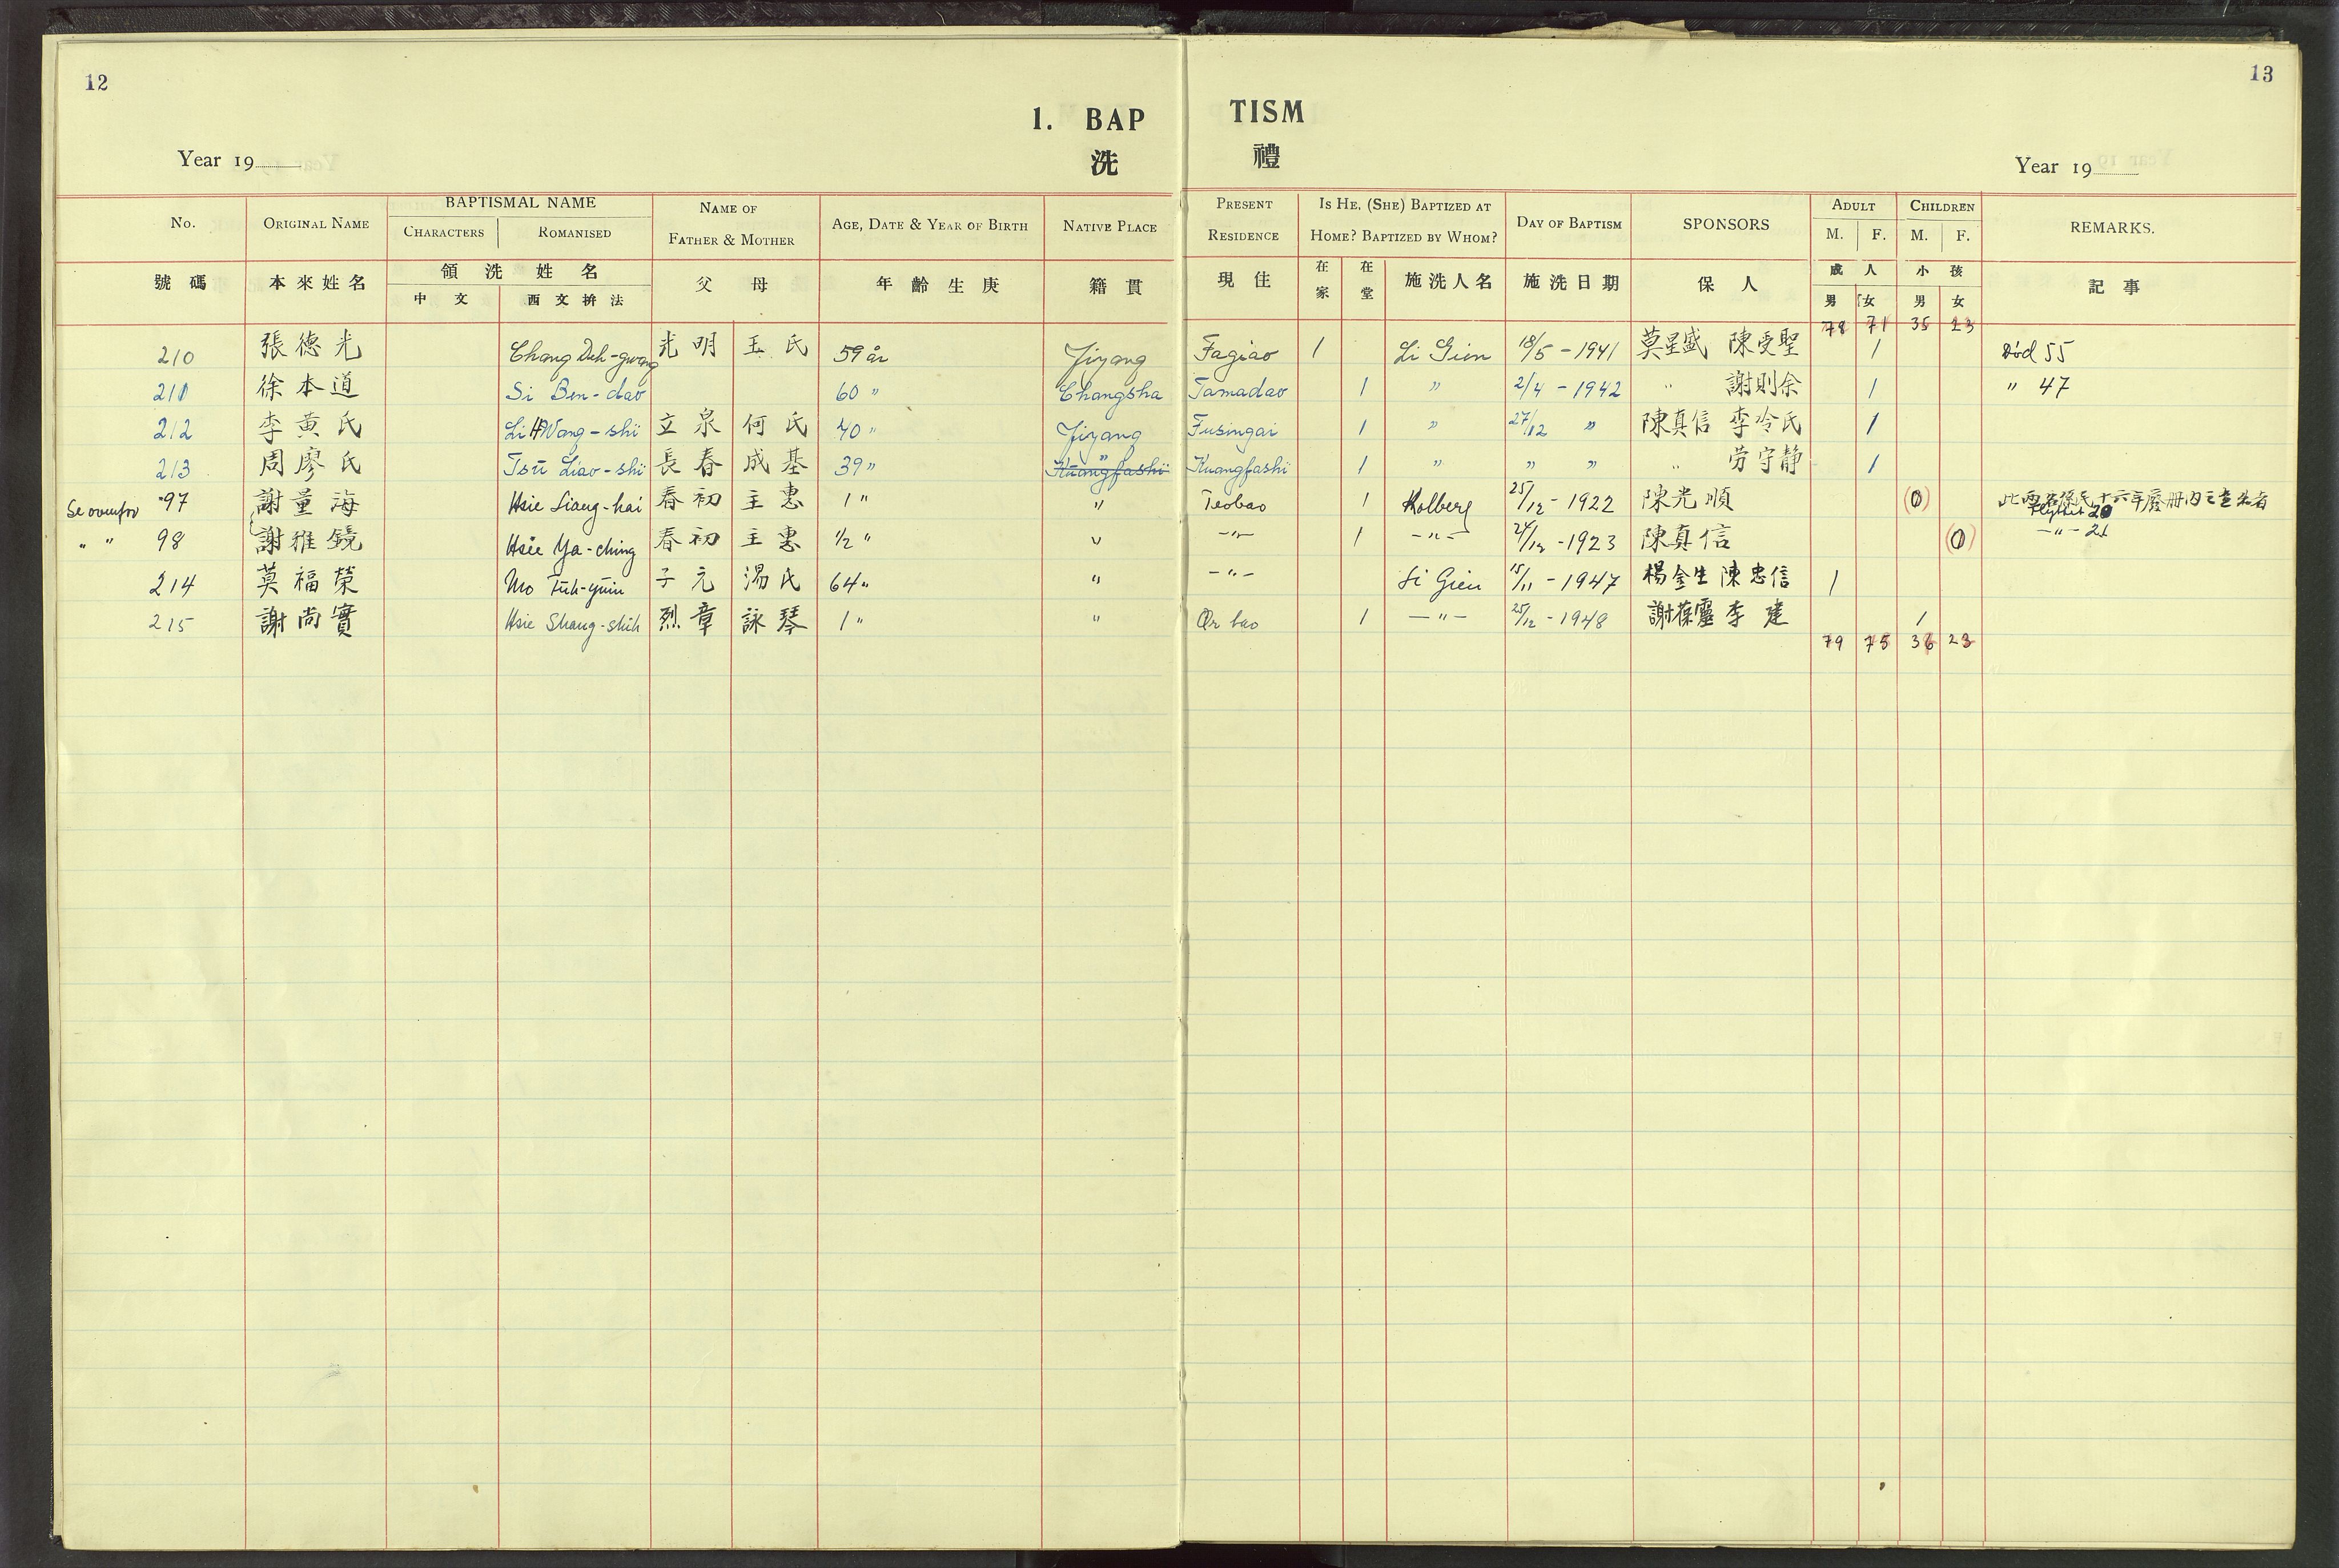 12
13
1. BAP TISM
洗 禮
Year 19
Year 19
No. ORIGINAL NAME BAPTISMAL NAME CHARACTERS ROMANISED NAME OF FATHER & MOTHER AGE, DATE & YEAR OF BIRTH NATIVE PLACE PRESENT RESIDENCE IS HE, (SHE) BAPTIZED AT HOME? BAPTIZED BY WHOM? DAY OF BAPTISM SPONSORS ADULT M. F. CHILDREN M. F. REMARKS.
號碼 本來姓名 領洗姓名 中文 西文拚法 父母 年齡生庚 籍貫 現住 在家 在堂 施洗人名 施洗日期 保人 成人 男 女 小孩 男 女 記事
78 71 35 23
210 張德光 Chang Deh-gwang 光明 玉氏 59 år Jiyang Fagiao 1 Li Gien 18/5 - 1941 莫星盛 陳受聖 1 Död 55
211 徐本道 Si Ben-dao 60 " Changsha Tamadao 1 " 2/4 - 1942 " 謝則余 1 " 47
212 李黃氏 Li HWang-shi 立泉 何氏 40 " Jiyang Fusingai 1 " 27/12 " 陳真信 李冷氏 1
213 周廖氏 Tsü Liao-shi 長春 成基 39 " " Kuangfashi Kuangfashi 1 " " " " 劳守静 1
Se ovenfor 97 謝量海 Hsie Liang-hai 春初 主惠 1 " " Teobao 1 Kolberg 25/12 - 1922 陳光順 (0) 十六年廢冊內 Flyttet 20
" " 98 謝雅鏡 Hsie Ya-ching 春初 主惠 1/2 " " -"- 1 -"- 24/12 - 1923 陳真信 (0) -"- 21
214 莫福榮 Mo Fuh-yüin 子元 湯氏 64 " " -"- Li Gien 15/11 - 1947 楊金生 陳忠信 1
215 謝尚實 Hsie Shang-shih 烈章 詠琴 1 " " Or bao 1 -"- 25/12 - 1948 謝葆靈 李建 1
79 75 36 23